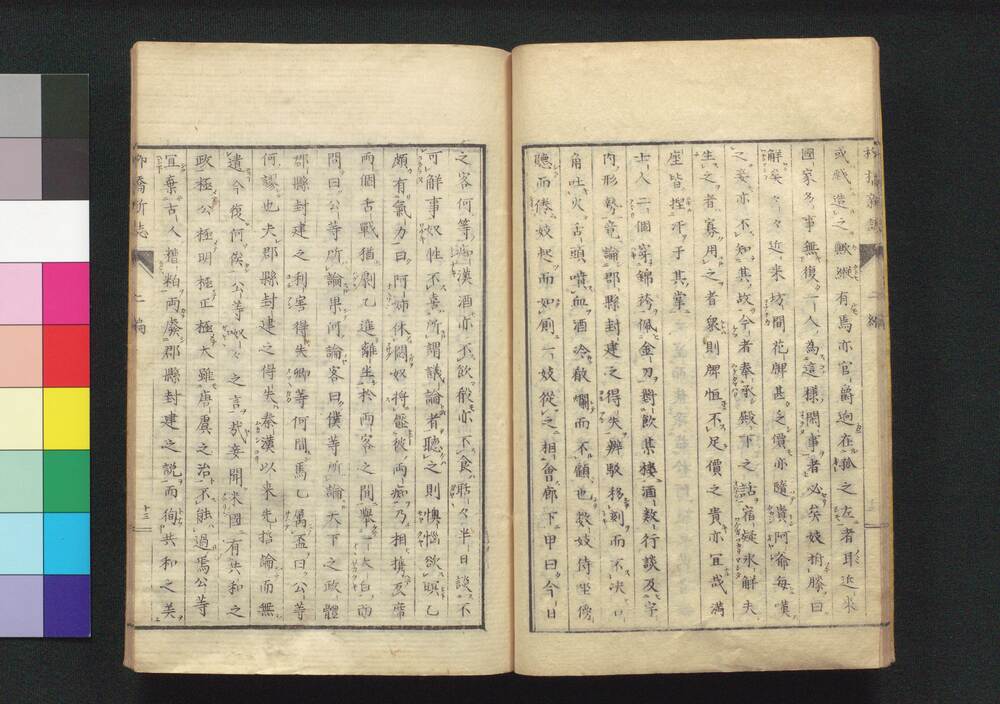 或戲造之歟緱有焉亦官爵迫在孤之左者耳近來
國家多事無復一人為這樣閑事者必矣妓拊膝曰
解矣々々近來坊間花牌甚之價亦隨貴阿爺每嘆
之妾亦不知其故今者奉承殿下之話宿疑氷解夫
生之者寡用之者衆則牌恒不足價之貴亦宜哉滿
座皆捏汗于其掌
士人二個穿錦袴佩金刀對飲某樓酒數行談及宇
內形勢竟論郡縣封建之得失辨駁移刻而不决口
角吐火舌頭噴血酒冷殽爛而不顧也數妓侍坐傍
聽而倦妓起而如厠一妓從之相會廊下甲曰今日
之客何等痴漢酒亦不飲殽亦不食聒々半日談不
可解事奴性不喜所謂議論者聽之則懊惱欲瞑乙
頗有氣力曰阿姉休悶奴將
兩個舌戰猶劇乙進離坐於兩客之間舉一大白而
問曰公等所論果何論客曰僕等所論天下之政體
郡縣封建之利害得失卿等何聞焉乙屬盃曰公等
何謬也夫郡縣封建之得失秦漢以來先儒論而無
遺今復何俟公等呶々之言哉妾聞米國有共和之
政極公極明極正極大雖唐虞之治不能過焉公等
宜棄古人糟粕兩廢郡縣封建之說而徇共和之美
柳橋新誌
二編
十三